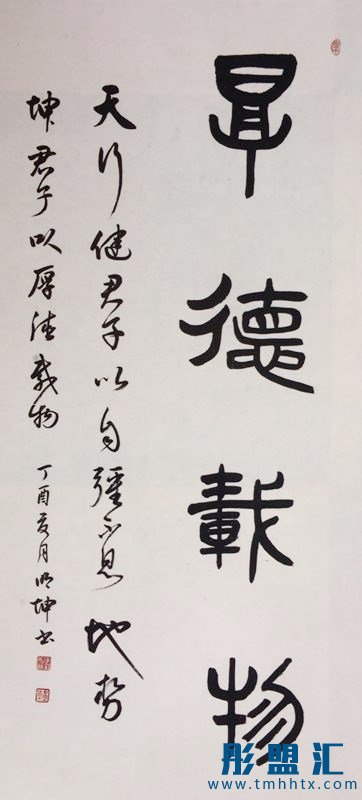 厚德載物
天行健君子以自彊不息地势
坤君子以厚德載物 丁酉亥月明坤书
彤盟汇
www.tmhhtx.com